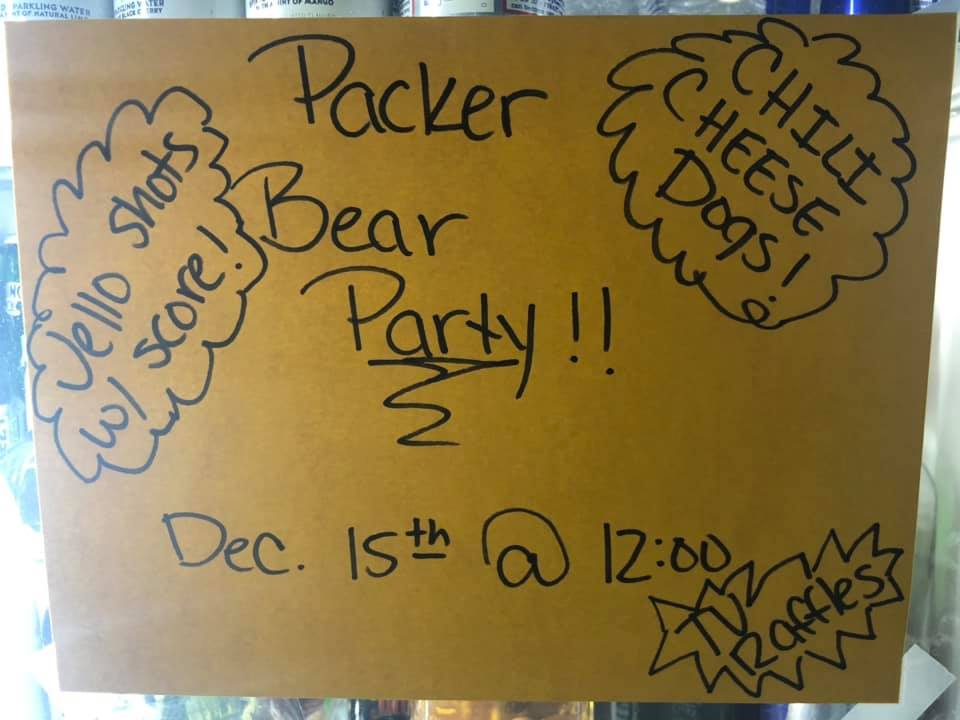 SPARKLING WATER
NT OF NATURAL
SPARKLING WATER
BLACK
NT OF MANGO
Packer
Bear
Party!!
Jello shots
w/ score!
CHILI
CHEESE
Dogs!
Dec. 15th @ 12:00
TV
Raffles